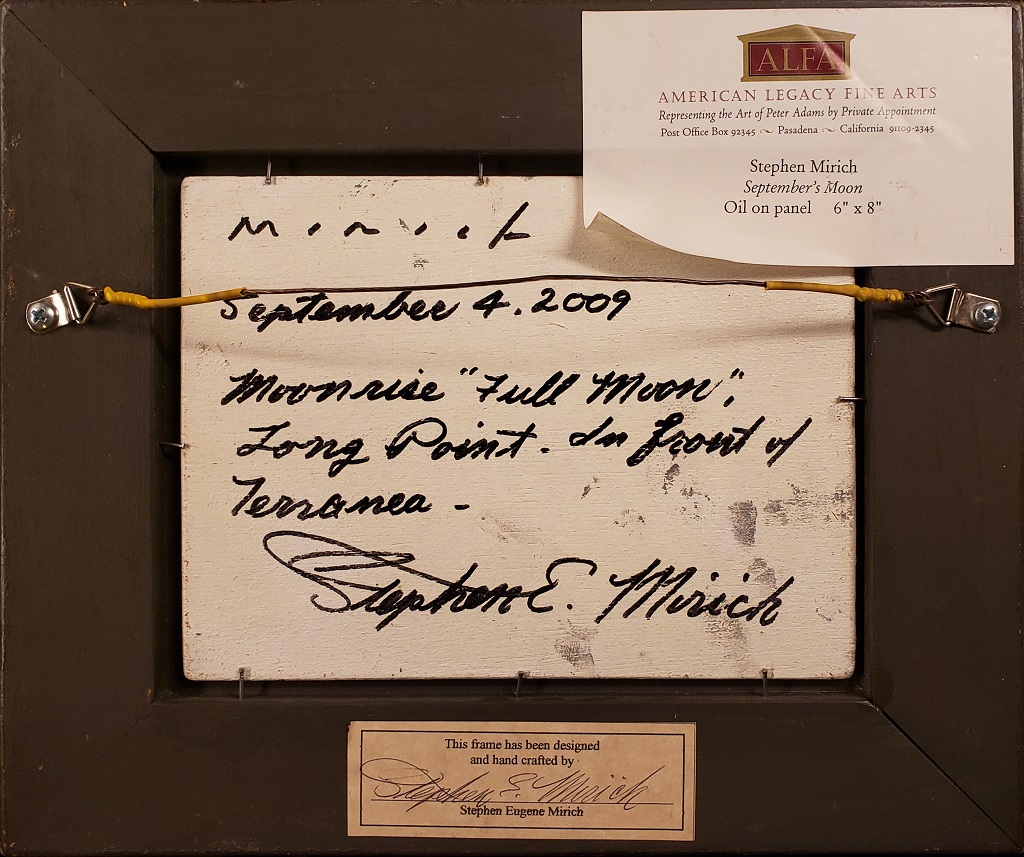 ALFA
AMERICAN LEGACY FINE ARTS
Representing the Art of Peter Adams by Private Appointment
Post Office Box 92345 ~ Pasadena ~ California 91109-2345
Stephen Mirich
September's Moon
Oil on panel 6" x 8"
Mirich
September 4. 2009
Moonrise "Full Moon",
Long Point. In front of
Terranea -
Stephen E. Mirich
This frame has been designed
and hand crafted by
Stephen E. Mirich
Stephen Eugene Mirich